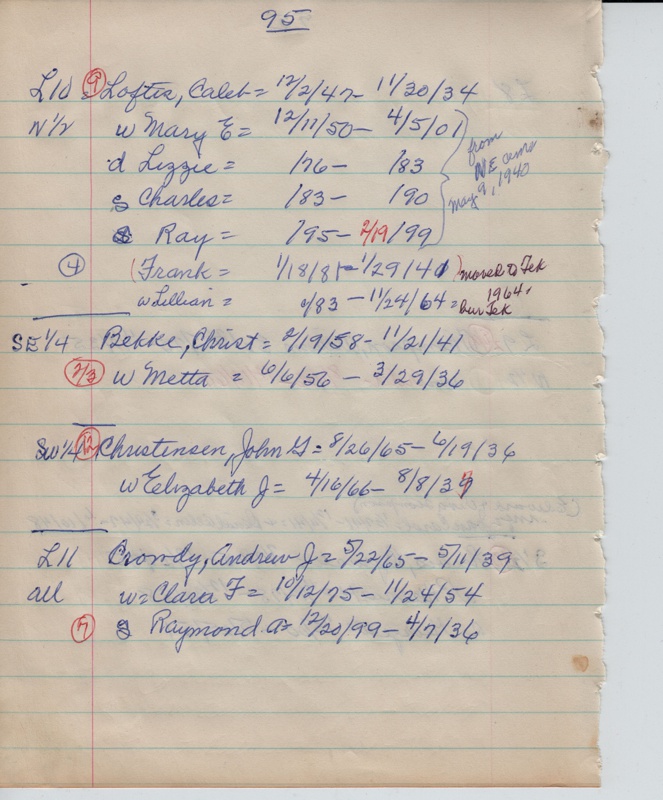 95
L10 9 Loftis, Caleb = 12/2/47 - 11/20/34
N 1/2 w Mary E = 12/11/50 - 4/5/01
d Lizzie = /76 - /83
s Charles = /83 - /90
s Ray = /95 - 2/19/99
from NE cem May 9, 1940
4 (Frank = 1/18/81 - 1/29/41) moved to Tek
w Lillian = /83 - 11/24/64 = 1964. bur Tek
SE 1/4 Bekke, Christ = 2/19/58 - 11/21/41
2/3 w Metta = 6/6/56 - 3/29/36
SW 1/4 Christensen, John G = 8/26/65 - 6/19/36
w Elizabeth J = 4/16/66 - 8/8/39
L11 Crowdy, Andrew J = 5/22/65 - 5/11/39
all w = Clara F = 10/12/75 - 11/24/54
7 s Raymond A = 12/20/99 - 4/7/36